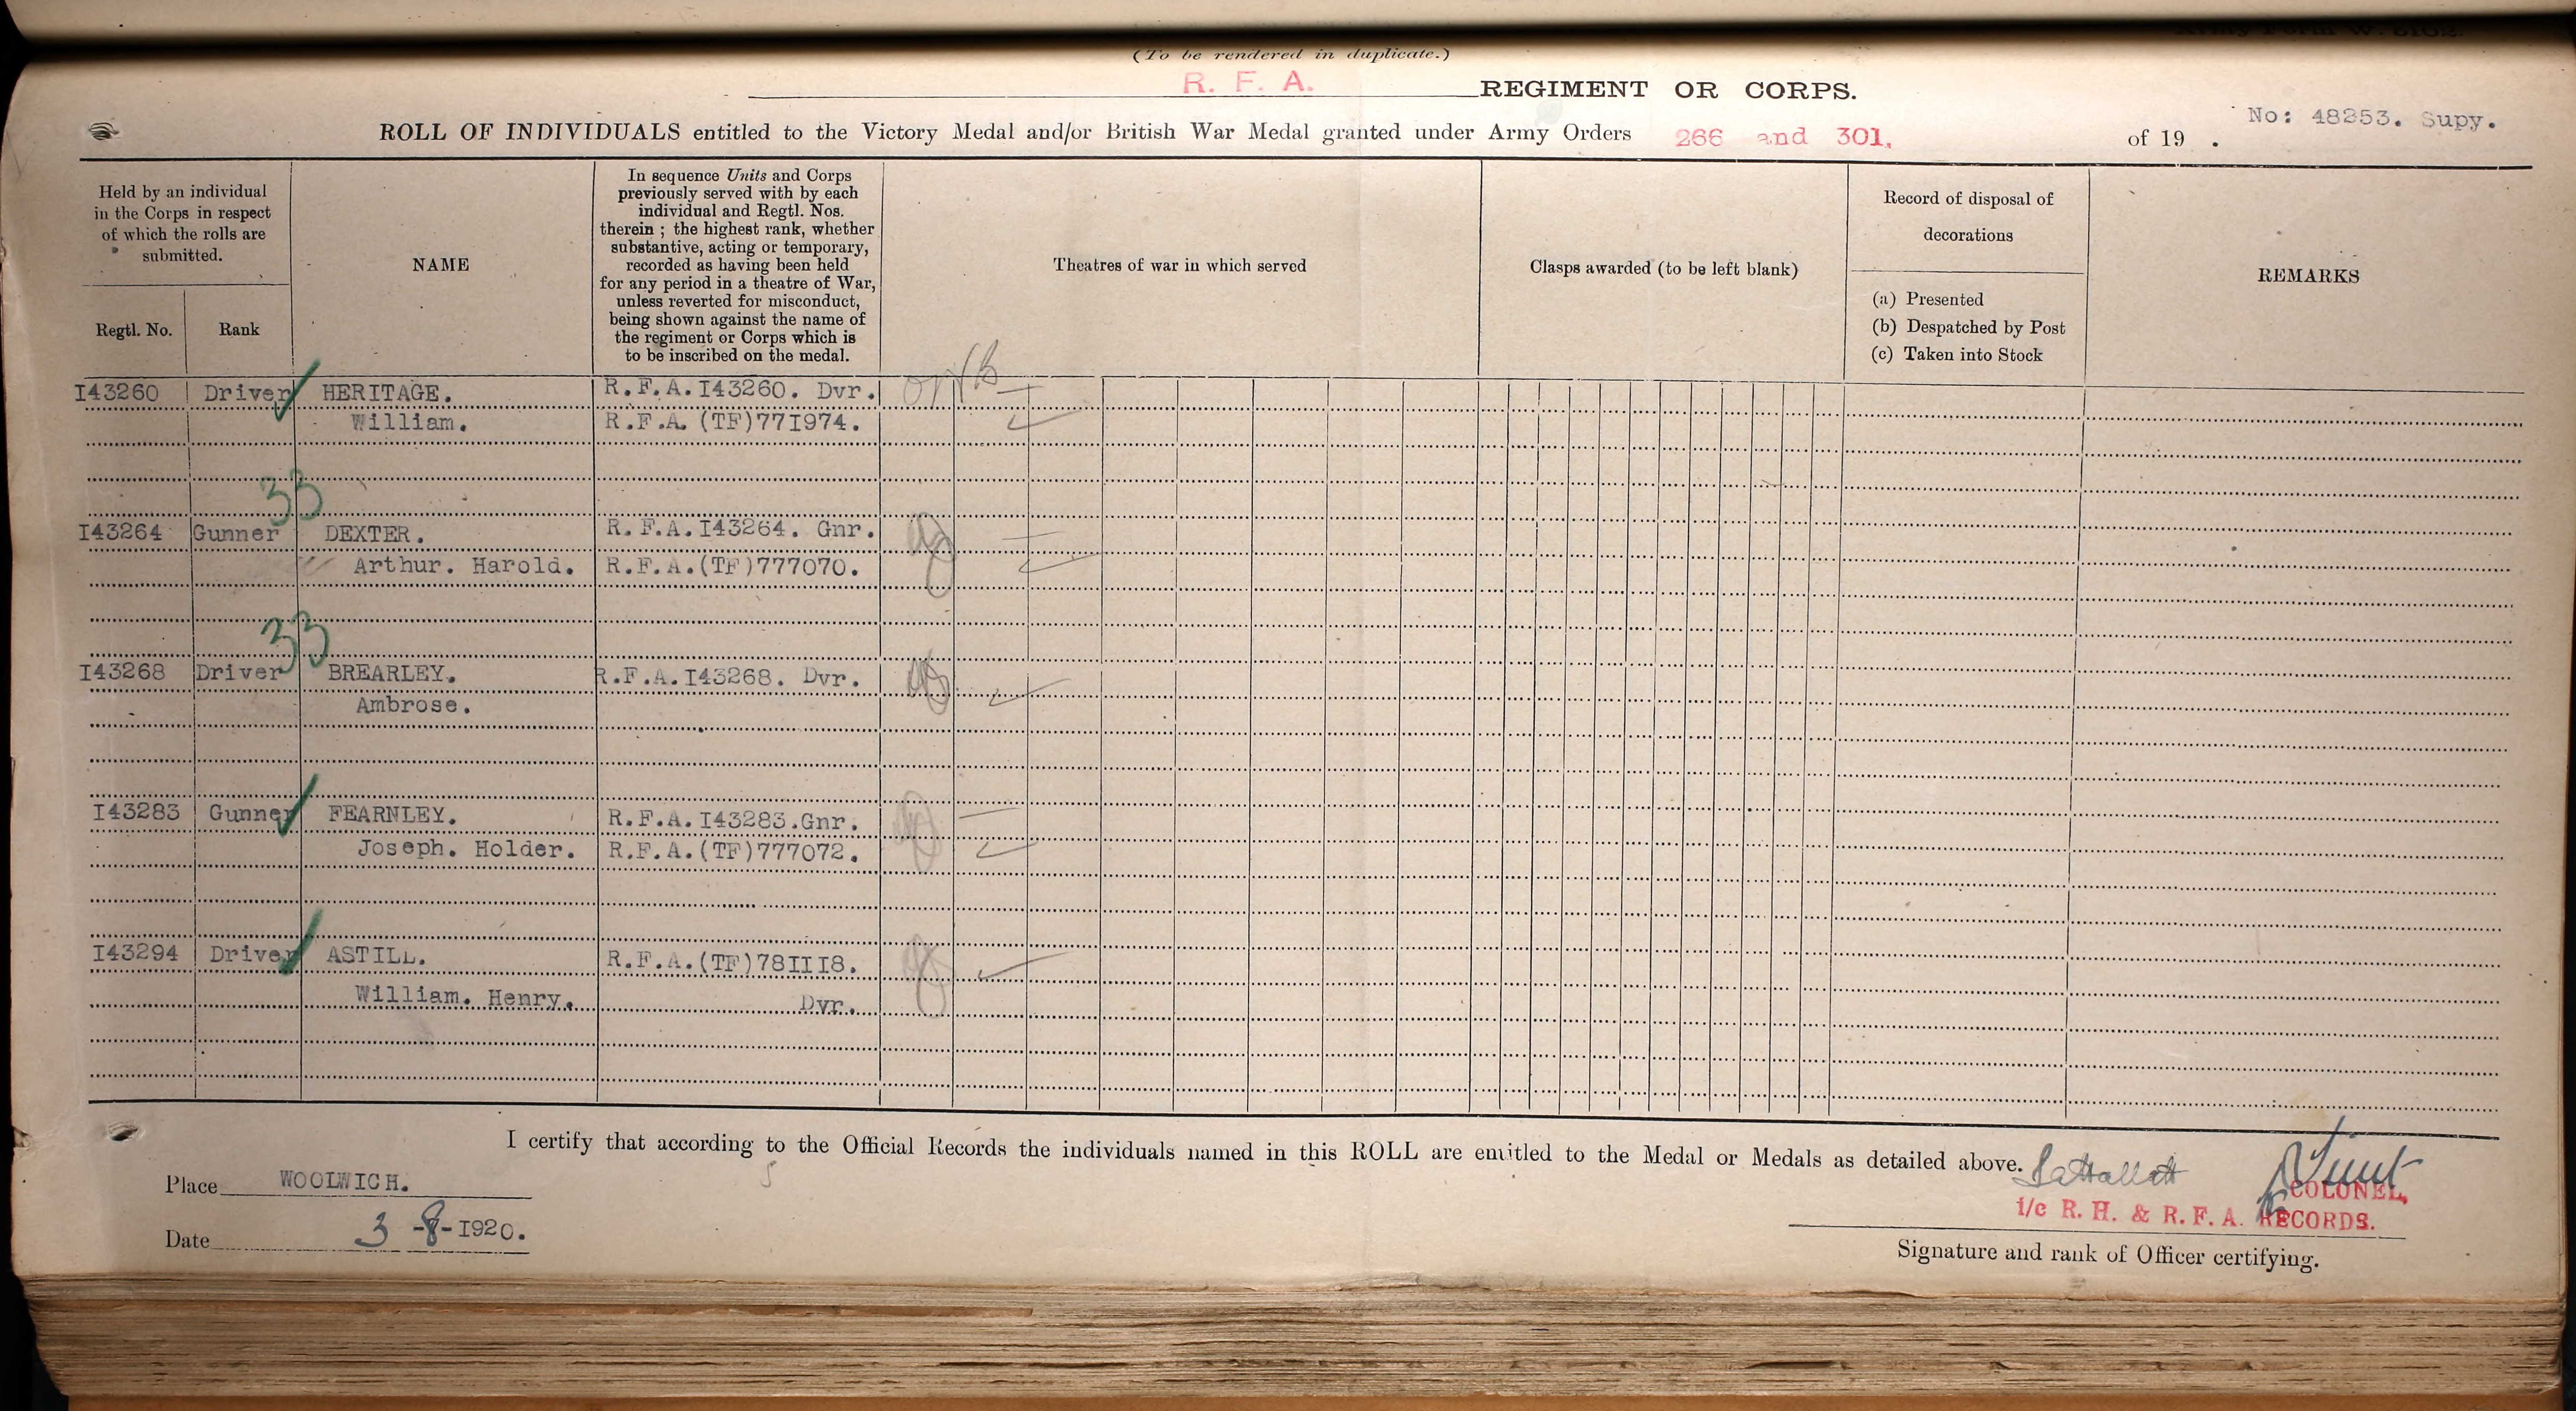 (To be rendered in duplicate.)
R. F. A. REGIMENT OR CORPS.
No: 48253. Supy.
ROLL OF INDIVIDUALS entitled to the Victory Medal and/or British War Medal granted under Army Orders 266 and 301. of 19 .
Held by an individual
in the Corps in respect
of which the rolls are
submitted.
Regtl. No. Rank
NAME
In sequence Units and Corps
previously served with by each
individual and Regtl. Nos.
therein ; the highest rank, whether
substantive, acting or temporary,
recorded as having been held
for any period in a theatre of War,
unless reverted for misconduct,
being shown against the name of
the regiment or Corps which is
to be inscribed on the medal.
Theatres of war in which served
Clasps awarded (to be left blank)
Record of disposal of
decorations
(a) Presented
(b) Despatched by Post
(c) Taken into Stock
REMARKS
I43260 Driver HERITAGE. R.F.A.I43260. Dvr.
William. R.F.A. (TF)77I974.
33
I43264 Gunner DEXTER. R.F.A.I43264. Gnr.
Arthur. Harold. R.F.A.(TF)777070.
33
I43268 Driver BREARLEY. R.F.A.I43268. Dvr.
Ambrose.
I43283 Gunner FEARNLEY. R.F.A.I43283.Gnr.
Joseph. Holder. R.F.A.(TF)777072.
I43294 Driver ASTILL. R.F.A.(TF)78III8.
William. Henry. Dvr.
I certify that according to the Official Records the individuals named in this ROLL are entitled to the Medal or Medals as detailed above.
Place WOOLWICH.
COLONEL,
i/c R. H. & R. F. A. RECORDS.
Date 3 -8-I920.
Signature and rank of Officer certifying.